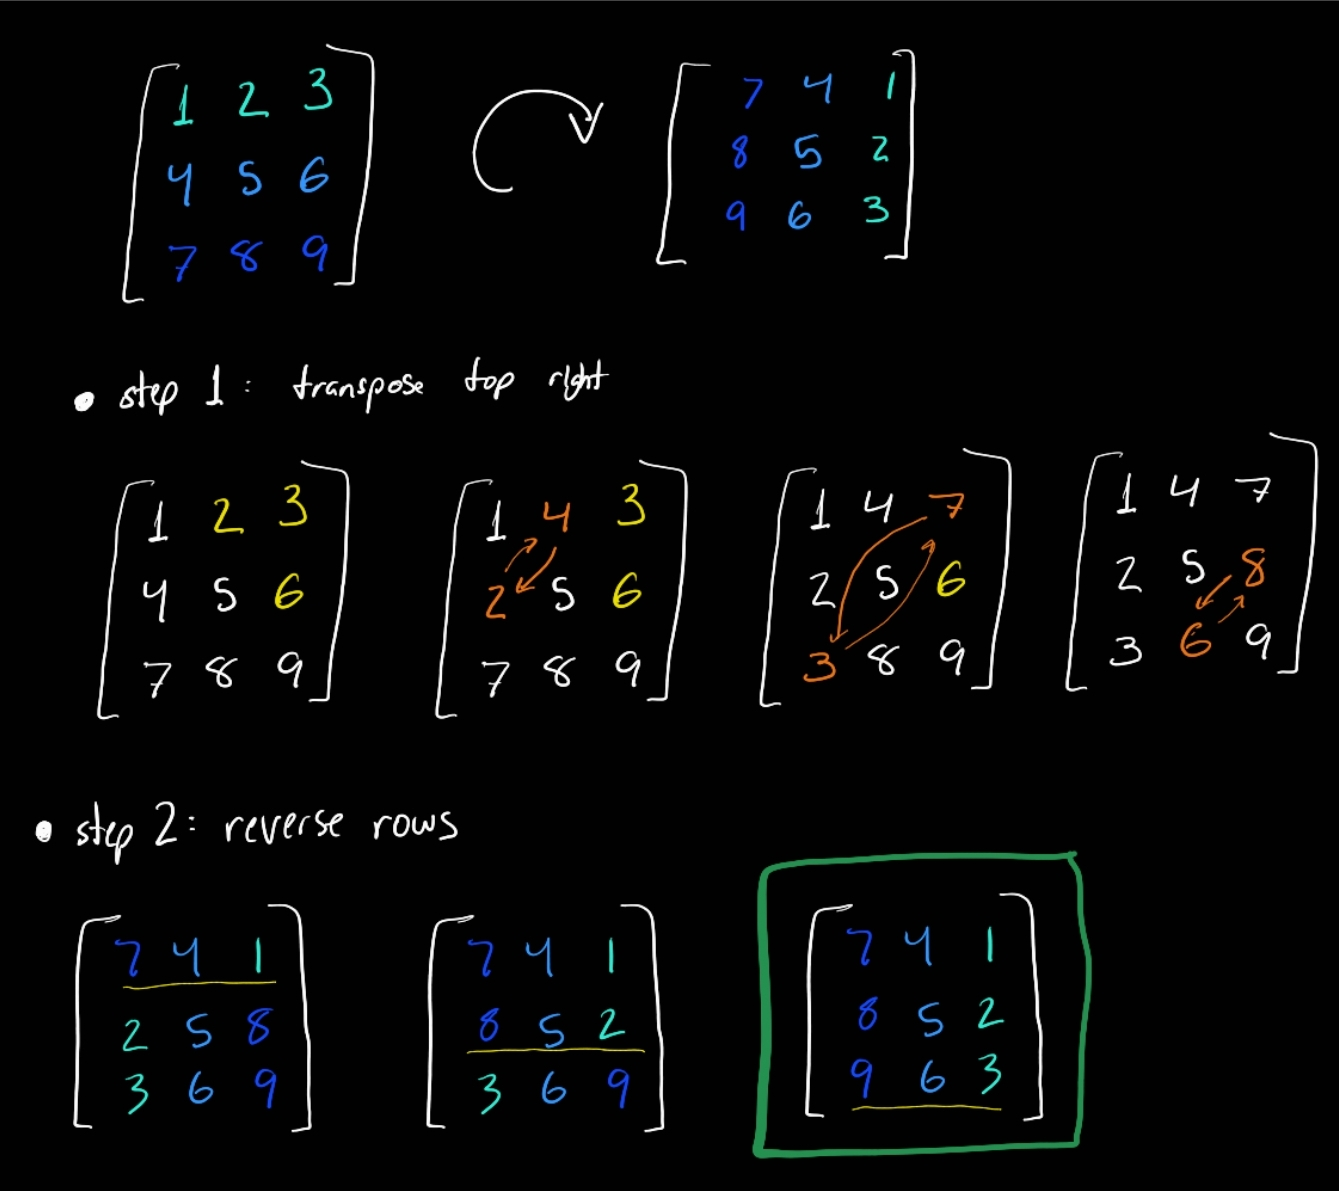 1 2 3
4 5 6
7 8 9
7 4 1
8 5 2
9 6 3
• step 1: transpose top right
1 2 3
4 5 6
7 8 9
1 4 3
2 5 6
7 8 9
1 4 7
2 5 6
3 8 9
1 4 7
2 5 8
3 6 9
• step 2: reverse rows
7 4 1
2 5 8
3 6 9
7 4 1
8 5 2
3 6 9
7 4 1
8 5 2
9 6 3